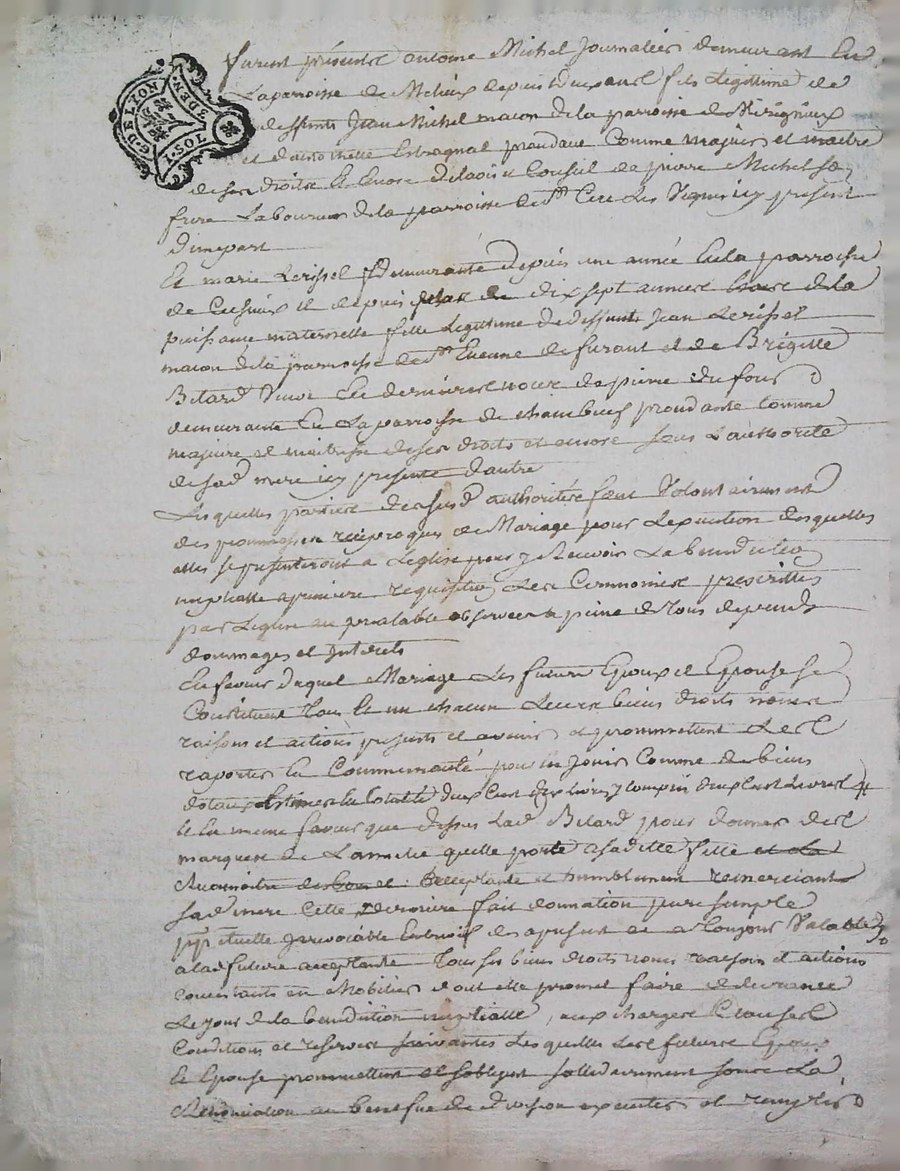 G. DE LYON
3 DEN.
1. SOL
furent présents antoine Michel Journalier demeurant En
La parroisse de depuis deux ans fils Legitime de
deffunts Jean Michel macon de la parroisse de Périgneux
et d'antoinette procedant Comme majeur et maitre
de ses droits Et Encore de Conseil de pierre Michel son
frere Laboureur de la parroisse de St Les present
d'une part
Et marie Lerissel demeurante depuis une année En la parroisse
de et depuis de dix sept années hors de la
puissance maternelle fille Legitime de deffunts Jean Lerissel
macon de la parroisse de St Etienne de furant et de Brigitte
Bitard Veuve En dernieres noces de pierre du four
demeurante En La parroisse de chambeuf procedante Comme
majeure et maitresse de ses droits et encore sous L'authorité
de sad mere icy presente d'autre
Lesquelles parties de susd authorités font Volontairement
des promesses reciproques de Mariage pour L'execution desquelles
elles se presenteront a L'eglise pour y Recevoir La benediction
nuptialle a premiere requisition Les Ceremonies prescrittes
par L'eglise au prealable observées a peine de tous depends
dommages et Interets
En faveur duquel Mariage Les futurs Epoux et Epouse se
Constituent tous Et un chacun Leurs biens droits noms
raisons et actions presents et avenirs et promettent Les
raporter En Communauté pour En Jouir Comme de biens
dotaux Estimes En totalité deux Cent Livres y Compris
Et En meme faveur que dessus Lad Bitard pour donner des
marques de L'amitié quelle porte a sa dette fille et La
et acceptante et humblement remerciant
sad mere Cette derniere fait donnation pure simple
perpetuelle Irrevocable Entrevifs des apresent et a toujours Valable
a lad future acceptante tous ses biens droits noms raisons et actions
Consistants en Mobilier dont elle promet faire delivrance
Le jour de la benediction nuptialle, aux charges Clauses
Conditions et reserves suivantes Lesquelles Les futurs Epoux
Et Epouse promettent et s'obligent sollidairement sous La
Renonciation au benefice de division executer et remplir